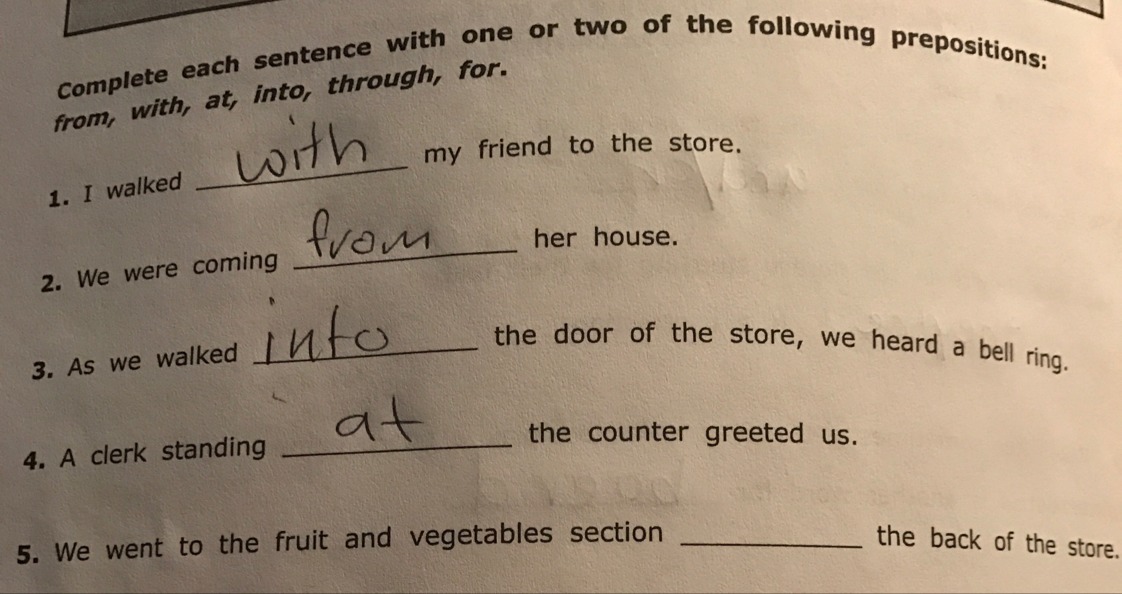 Complete each sentence with one or two of the following prepositions:
from, with, at, into, through, for.
1. I walked with my friend to the store.
2. We were coming from her house.
3. As we walked into the door of the store, we heard a bell ring.
4. A clerk standing at the counter greeted us.
5. We went to the fruit and vegetables section __________ the back of the store.